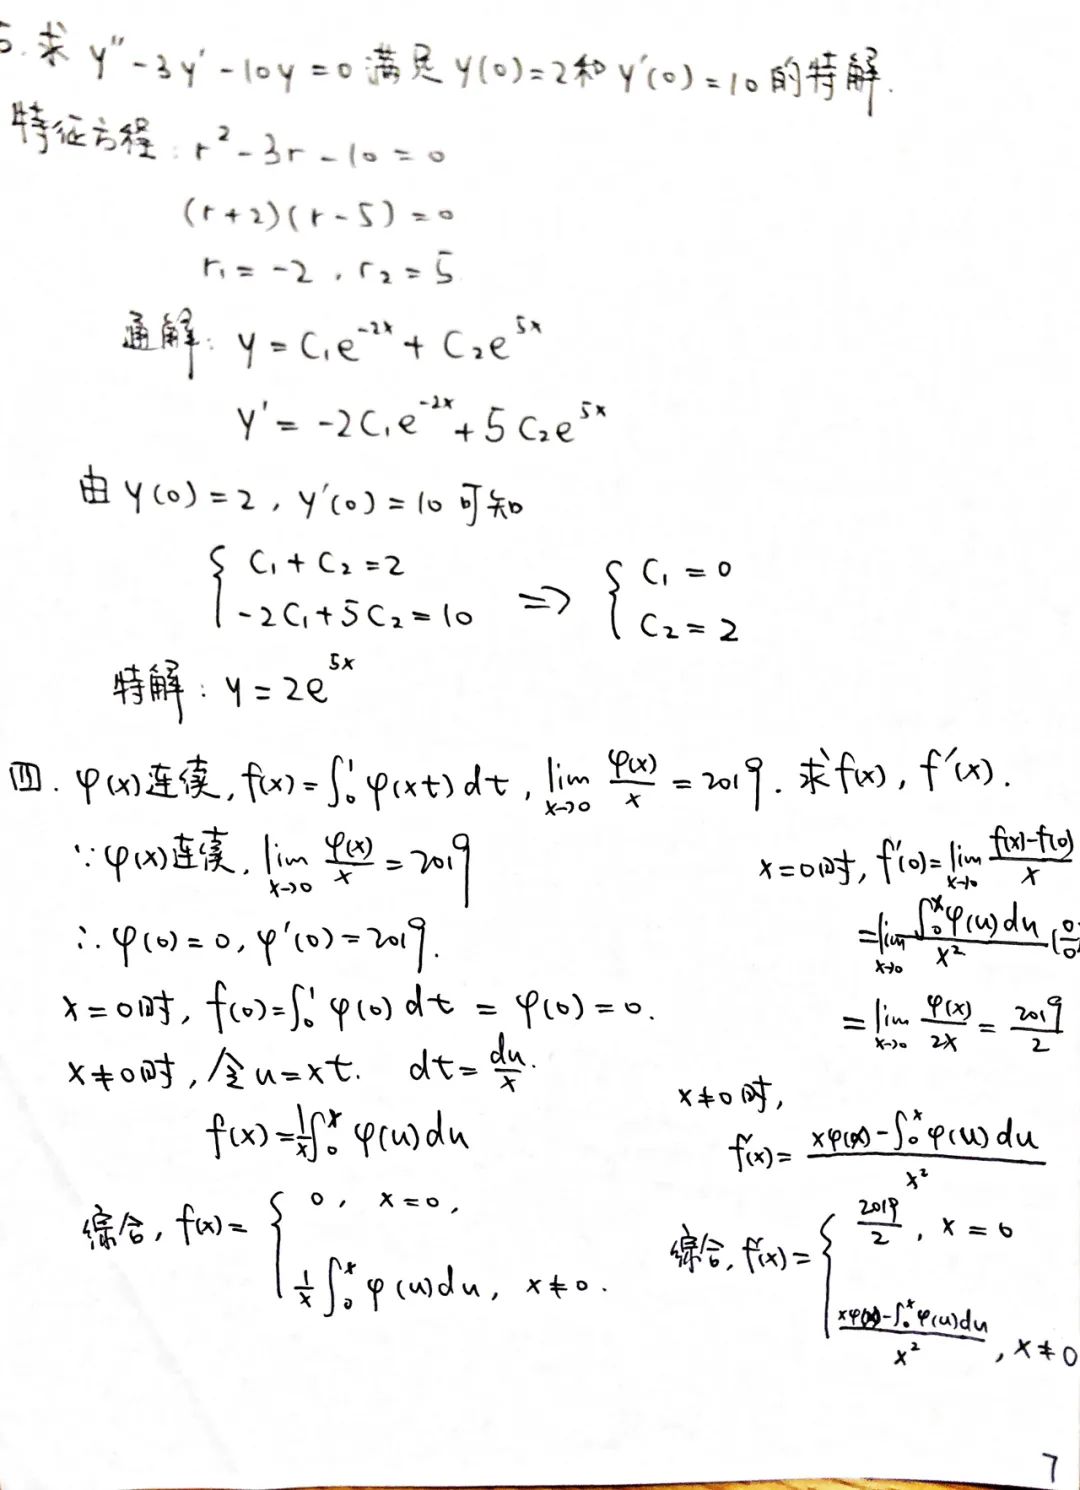 5.求 y″-3y′-10y=0 满足 y(0)=2和 y′(0)=10 的特解.
特征方程: r²-3r-10=0
(r+2)(r-5)=0
r₁=-2, r₂=5
通解: y=C₁e^{-2x}+C₂e^{5x}
y′=-2C₁e^{-2x}+5C₂e^{5x}
由 y(0)=2, y′(0)=10 可知
{ C₁+C₂=2 ; -2C₁+5C₂=10 => { C₁=0 ; C₂=2
特解: y=2e^{5x}
四. φ(x)连续, f(x)=∫₀¹φ(xt)dt, lim_{x→0} φ(x)/x = 2019. 求f(x), f′(x).
∵φ(x)连续, lim_{x→0} φ(x)/x = 2019
∴φ(0)=0, φ′(0)=2019.
x=0时, f(0)=∫₀¹φ(0)dt = φ(0)=0.
x≠0时, 令u=xt. dt=du/x.
f(x)=1/x∫₀ˣφ(u)du
综合, f(x)= { 0, x=0, ; 1/x∫₀ˣφ(u)du, x≠0.
x=0时, f′(0)=lim_{x→0} (f(x)-f(0))/x
=lim_{x→0} ∫₀ˣφ(u)du/x² (0/0)
=lim_{x→0} φ(x)/2x = 2019/2
x≠0时,
f′(x)= (xφ(x)-∫₀ˣφ(u)du)/x²
综合, f′(x)= { 2019/2, x=0 ; (xφ(x)-∫₀ˣφ(u)du)/x², x≠0
7